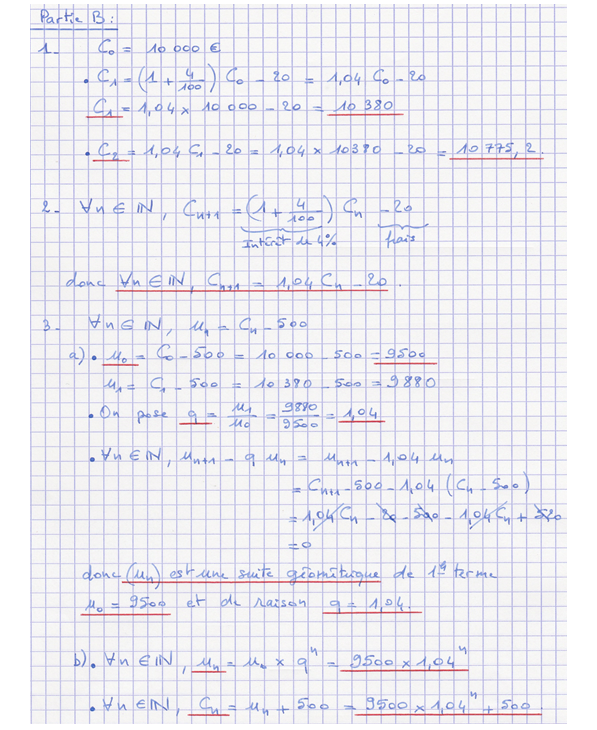 Partie B :
1- C₀ = 10 000 €
• C₁ = (1 + 4/100) C₀ - 20 = 1,04 C₀ - 20
C₁ = 1,04 × 10 000 - 20 = 10 380
• C₂ = 1,04 C₁ - 20 = 1,04 × 10380 - 20 = 10 775,2.
2- ∀n ∈ IN, Cₙ₊₁ = (1 + 4/100) Cₙ - 20
Intérêt de 4% frais
donc ∀n ∈ IN, Cₙ₊₁ = 1,04 Cₙ - 20.
3- ∀n ∈ IN, uₙ = Cₙ - 500
a) • u₀ = C₀ - 500 = 10 000 - 500 = 9500
u₁ = C₁ - 500 = 10 380 - 500 = 9880
• On pose q = u₁/u₀ = 9880/9500 = 1,04
• ∀n ∈ IN, uₙ₊₁ - q uₙ = uₙ₊₁ - 1,04 uₙ
= Cₙ₊₁ - 500 - 1,04 (Cₙ - 500)
= 1,04 Cₙ - 20 - 500 - 1,04 Cₙ + 520
= 0
donc (uₙ) est une suite géométrique de 1er terme
u₀ = 9500 et de raison q = 1,04.
b) • ∀n ∈ IN, uₙ = u₀ × qⁿ = 9500 × 1,04ⁿ
• ∀n ∈ IN, Cₙ = uₙ + 500 = 9500 × 1,04ⁿ + 500.